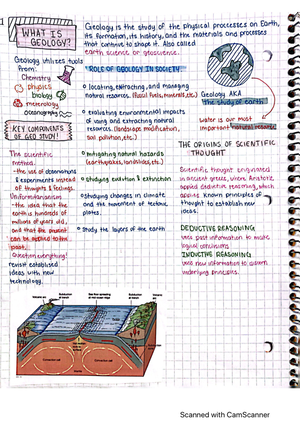 1
WHAT IS
GEOLOGY?
Geology is the study of the physical processes on Earth,
its formation, its history, and the materials and processes
that continue to shape it. Also called
earth science or geoscience.
Geology utilizes tools
from:
Chemistry
physics
biology
meteorology
oceanography
KEY COMPONENTS
OF GEO STUDY:
The scientific
method:
- the use of observations
& experiments instead
of thoughts & feelings.
Uniformitarianism
- the idea that the
earth is hundreds of
millions of years old,
and that the present
can be applied to the
past.
Question everything!
revisit established
ideas with new
technology.
ROLE OF GEOLOGY IN SOCIETY
locating, extracting, and managing
natural resources (fossil fuels, minerals, etc.)
evaluating environmental impacts
of using and extracting natural
resources. (landscape modification,
soil pollution, etc.)
mitigating natural hazards
(earthquakes, landslides, etc.)
studying evolution & extinction
studying changes in climate
and the movement of tectonic
plates.
study the layers of the earth
Geology AKA
The study of earth
water is our most
important natural resource
THE ORIGINS OF SCIENTIFIC
THOUGHT
Scientific thought originated
in ancient greece, where Aristotle
applied deductive reasoning, which
applies known principles of
thought to establish new
ideas.
DEDUCTIVE REASONING
uses past information to make
logical conclusions
INDUCTIVE REASONING
uses new information to discern
underlying principles.
Scanned with CamScanner